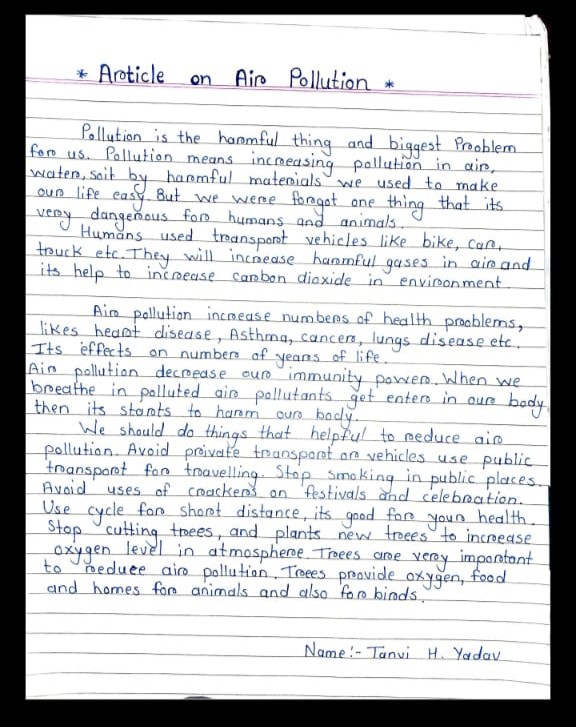 * Article on Air Pollution *
Pollution is the harmful thing and biggest Problem
for us. Pollution means increasing pollution in air,
water, soil by harmful materials we used to make
our life easy. But we were forgot one thing that its
very dangerous for humans and animals.
Humans used transport vehicles like bike, car,
truck etc. They will increase harmful gases in air and
its help to increase carbon dioxide in environment.
Air pollution increase numbers of health problems,
likes heart disease, Asthma, cancer, lungs disease etc.
Its effects on number of years of life.
Air pollution decrease our immunity power. When we
breathe in polluted air pollutants get enter in our body
then its starts to harm our body.
We should do things that helpful to reduce air
pollution. Avoid private transport or vehicles use public
transport for travelling. Stop smoking in public places.
Avoid uses of crackers on festivals and celebration.
Use cycle for short distance, its good for your health.
Stop cutting trees, and plants new trees to increase
oxygen level in atmosphere. Trees are very important
to reduce air pollution. Trees provide oxygen, food
and homes for animals and also for birds.
Name:- Tanvi H. Yadav